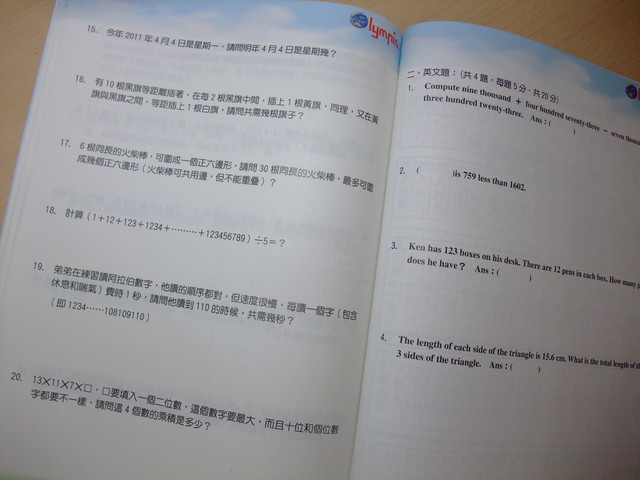 lympic
15. 今年2011年4月4日是星期一,請問明年4月4日是星期幾?
16. 有10根黑旗等距離插著,在每2根黑旗中間,插上1根黃旗,同理,又在黃
旗與黑旗之間,等距插上1根白旗,請問共需幾根旗子?
17. 6根同長的火柴棒,可圍成一個正六邊形,請問30根同長的火柴棒,最多可圍
成幾個正六邊形(火柴棒可共用邊,但不能重疊)?
18. 計算(1+12+123+1234+………+123456789)÷5=?
19. 弟弟在練習讀阿拉伯數字,他讀的順序都對,但速度很慢,每讀一個字(包含
休息和喘氣)費時1秒,請問他讀到110的時候,共需幾秒?
(即1234……108109110)
20. 13×11×7×□,□要填入一個二位數,這個數字要最大,而且十位和個位數
字都要不一樣,請問這4個數的乘積是多少?
二、英文題:(共4題,每題5分,共20分)
1. Compute nine thousand + four hundred seventy-three − seven
three hundred twenty-three. Ans:( )
2. ( )is 759 less than 1602.
3. Ken has 123 boxes on his desk. There are 12 pens in each box. How many
does he have? Ans:( )
4. The length of each side of the triangle is 15.6 cm. What is the total length of
3 sides of the triangle. Ans:( )